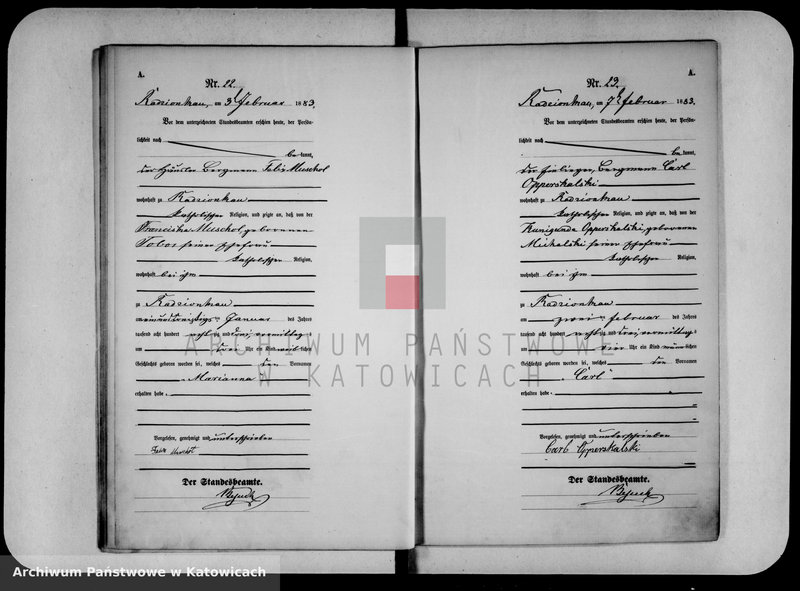 A.
Nr. 22.
Radzionkau, am 3t Februar 1883.
Vor dem unterzeichneten Standesbeamten erschien heute, der Persön-
lichkeit nach
be kannt,
der Häusler Bergmann Felix Muschol
wohnhaft zu Radzionkau
katholischer Religion, und zeigte an, daß von der
Franciska Muschol geborenen
Tobor seiner Ehefrau
katholischer Religion,
wohnhaft bei ihm
zu Radzionkau
am einunddreißigsten Januar des Jahres
tausend acht hundert achtzig und drei, vormittags
um drei Uhr ein Kind weiblichen
Geschlechts geboren worden sei, welches den Vornamen
„Marianna“
erhalten habe.
Vorgelesen, genehmigt und unterschrieben
Felix Muschol
Der Standesbeamte.
A.
Nr. 23.
Radzionkau, am 7t Februar 1883.
Vor dem unterzeichneten Standesbeamten erschien heute, der Persön-
lichkeit nach
be kannt,
der Einlieger, Bergmann Carl
Opperskalski
wohnhaft zu Radzionkau
katholischer Religion, und zeigte an, daß von der
Kunigunde Opperskalski, geborenen
Michalski seiner Ehefrau
katholischer Religion,
wohnhaft bei ihm
zu Radzionkau
am zwei ten Februar des Jahres
tausend acht hundert achtzig und drei, vormittags
um vier Uhr ein Kind männlichen
Geschlechts geboren worden sei, welches den Vornamen
„Carl“
erhalten habe.
Vorgelesen, genehmigt und unterschrieben
Carl Opperskalski
Der Standesbeamte.
ARCHIWUM PAŃSTWOWE
W KATOWICACH
Archiwum Państwowe w Katowicach